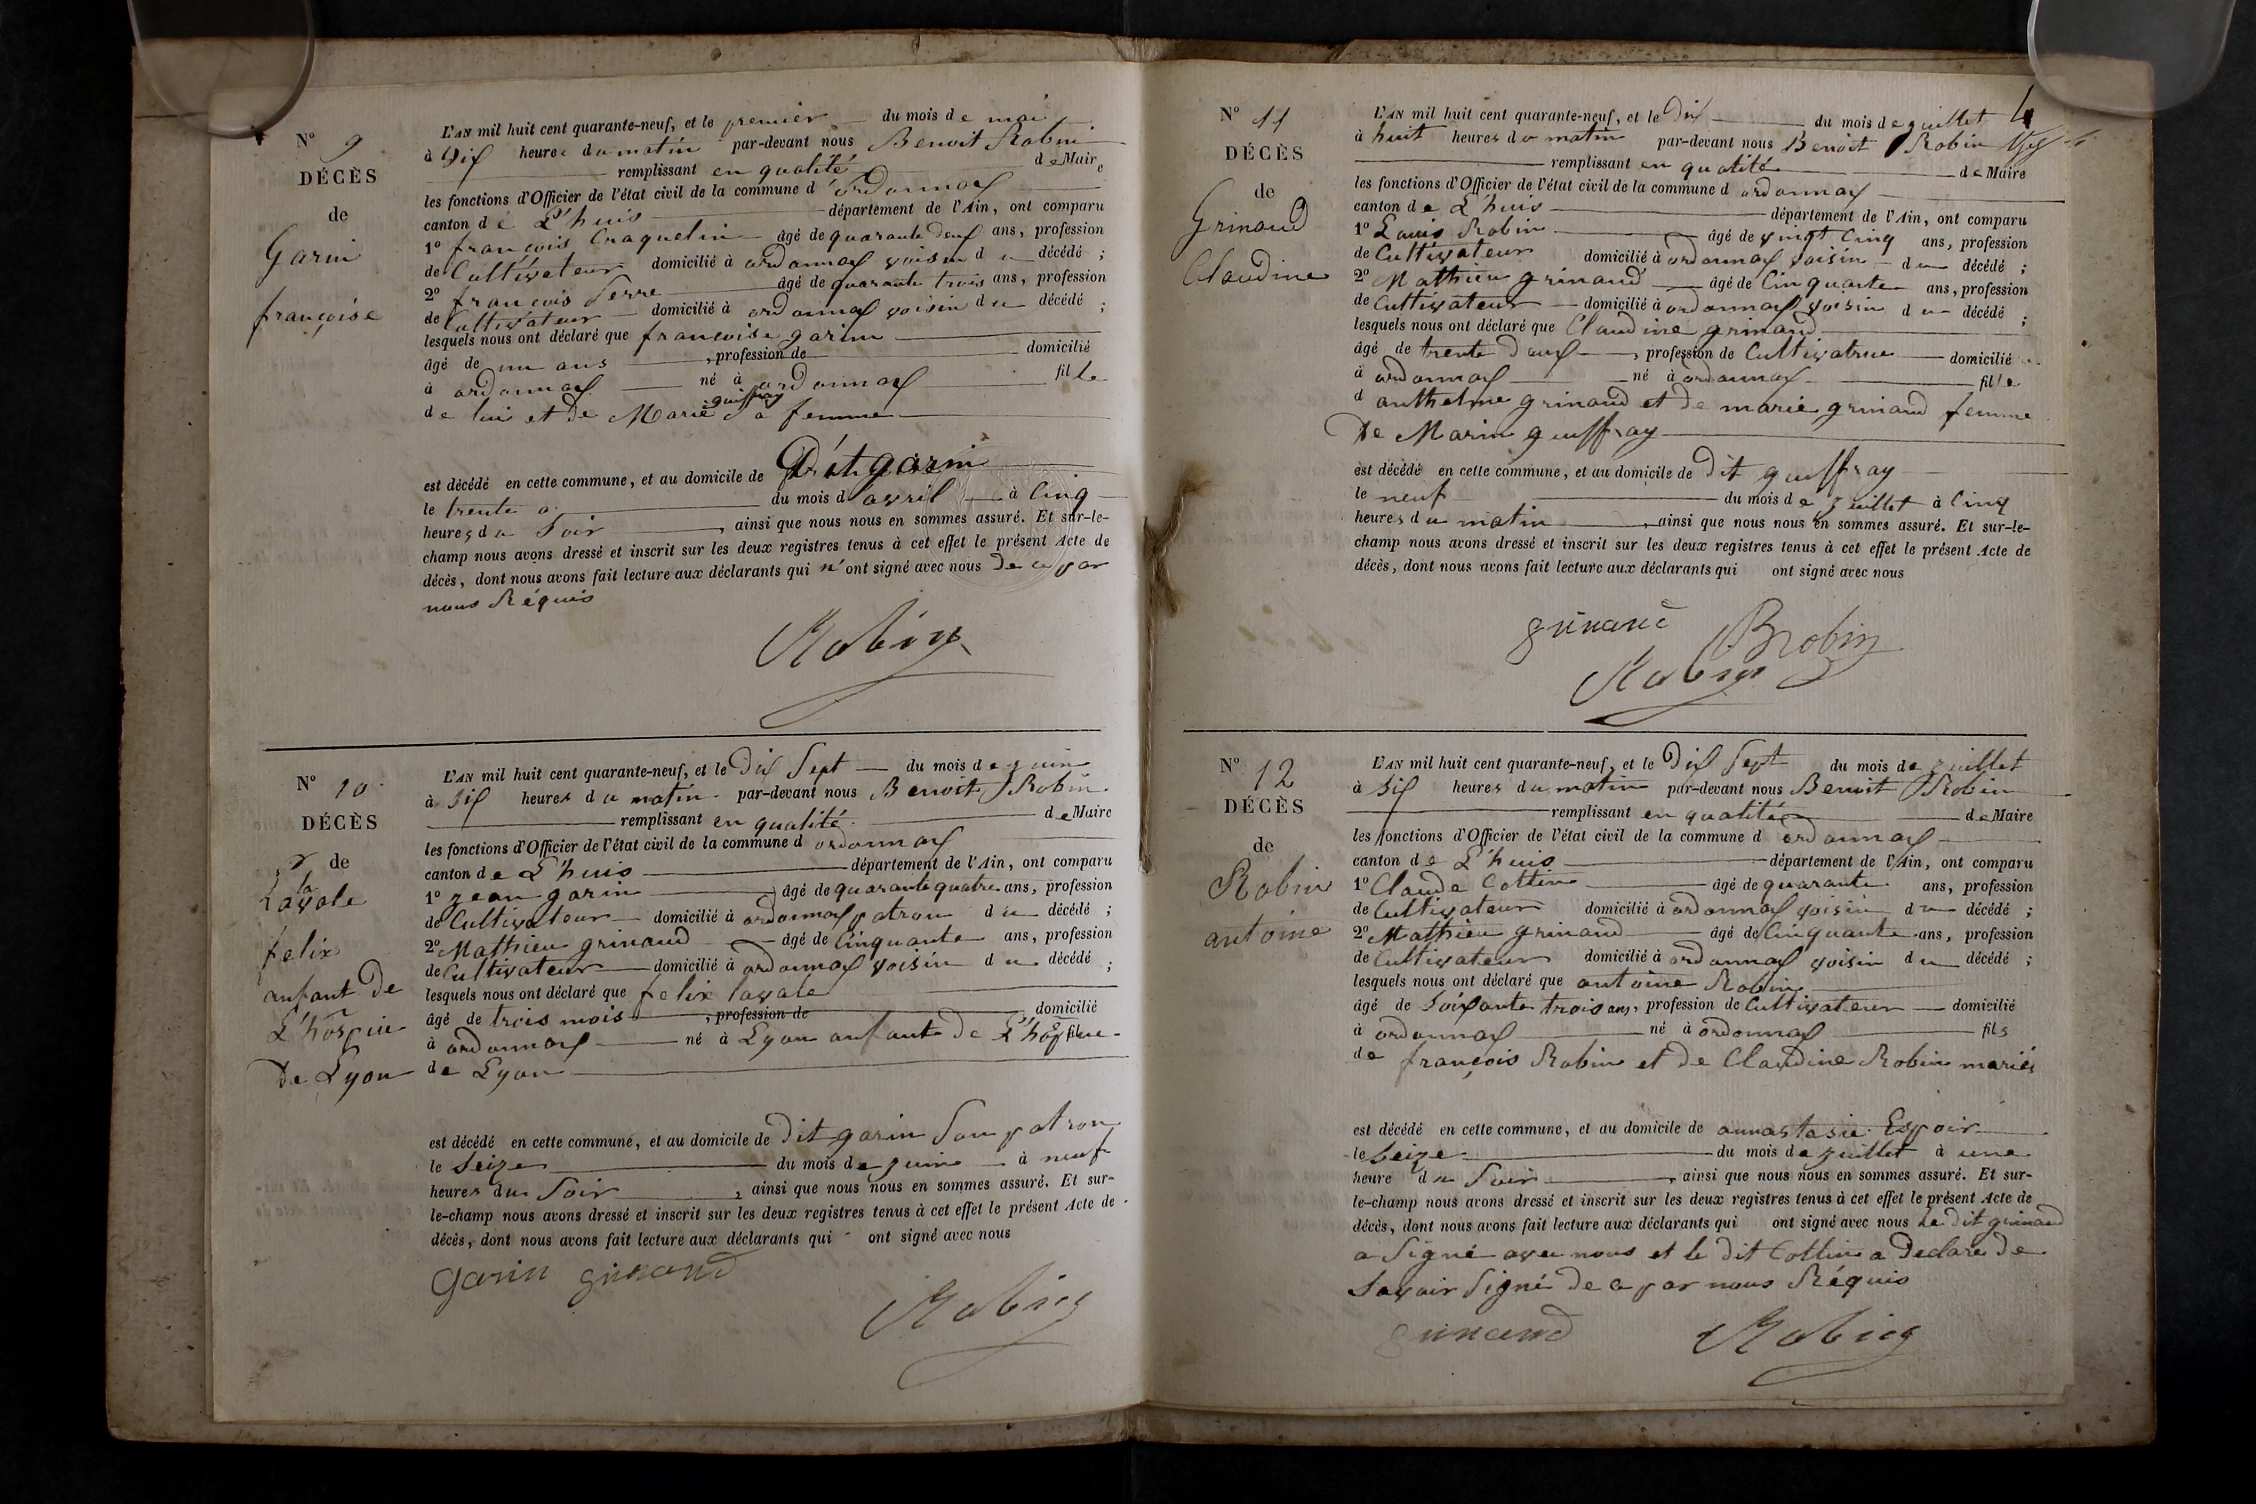 Nº 9
DÉCÈS
de
Garin
françoise
L'AN mil huit cent quarante-neuf, et le premier du mois de mai
à Six heures du matin par-devant nous Benoit Robin
remplissant en qualité de Maire
les fonctions d'Officier de l'état civil de la commune d'ordonnax
canton de L'huis département de l'Ain, ont comparu
1º françois Craquelin âgé de quarante deux ans, profession
de Cultivateur domicilié à ordonnax voisin du décédé ;
2º françois Serre âgé de quarante trois ans, profession
de Cultivateur domicilié à ordonnax voisin du décédé ;
lesquels nous ont déclaré que francoise garin
âgé de un ans , profession de domicilié
à ordonnax né à ordonnax fille
de lui et de Marie guiffray Sa femme
est décédé en cette commune, et au domicile de Dit garin
le trente du mois d'avril à Cinq
heures du Soir , ainsi que nous nous en sommes assuré. Et sur-le-
champ nous avons dressé et inscrit sur les deux registres tenus à cet effet le présent Acte de
décès, dont nous avons fait lecture aux déclarants qui n'ont signé avec nous de ce par
nous Réquis
Robin
Nº 10
DÉCÈS
de
Lavale
la
felix
enfant de
L'hospice
De Lyon
L'AN mil huit cent quarante-neuf, et le Dix Sept du mois de juin
à Six heures du matin par-devant nous Benoit Robin
remplissant en qualité de Maire
les fonctions d'Officier de l'état civil de la commune d ordonnax
canton de L'huis département de l'Ain, ont comparu
1º Jean garin âgé de quarante quatre ans, profession
de Cultivateur domicilié à ordonnax patron du décédé ;
2º Mathieu grinand âgé de Cinquante ans, profession
de Cultivateur domicilié à ordonnax voisin du décédé ;
lesquels nous ont déclaré que felix lavale
âgé de trois mois , profession de domicilié
à ordonnax né à Lyon enfant de L'hospice fil
de Lyon
est décédé en cette commune, et au domicile de Dit garin Son patron
le Seize du mois de juin à neuf
heures du Soir , ainsi que nous nous en sommes assuré. Et sur-
le-champ nous avons dressé et inscrit sur les deux registres tenus à cet effet le présent Acte de
décès, dont nous avons fait lecture aux déclarants qui ont signé avec nous
Garin grinand
Robin
4
Nº 11
DÉCÈS
de
Grinand
Claudine
L'AN mil huit cent quarante-neuf, et le Dix du mois de juillet
à huit heures du matin par-devant nous Benoit Robin
remplissant en qualité de Maire
les fonctions d'Officier de l'état civil de la commune d ordonnax
canton de L'huis département de l'Ain, ont comparu
1º Louis Robin âgé de vingt Cinq ans, profession
de Cultivateur domicilié à ordonnax voisin du décédé ;
2º Mathieu grinand âgé de Cinquante ans, profession
de Cultivateur domicilié à ordonnax voisin du décédé ;
lesquels nous ont déclaré que Claudine grinand
âgé de trente deux , profession de Cultivatrice domicilié
à ordonnax né à ordonnax fille
d'anthelme grinand et de marie grinand femme
De Marin guiffray
est décédé en cette commune, et au domicile de Dit guiffray
le neuf du mois de juillet à Cinq
heures du matin , ainsi que nous nous en sommes assuré. Et sur-le-
champ nous avons dressé et inscrit sur les deux registres tenus à cet effet le présent Acte de
décès, dont nous avons fait lecture aux déclarants qui ont signé avec nous
grinand BRobin
Robin
Nº 12
DÉCÈS
de
Robin
antoine
L'AN mil huit cent quarante-neuf, et le Dix Sept du mois de juillet
à Six heures du matin par-devant nous Benoit Robin
remplissant en qualité de Maire
les fonctions d'Officier de l'état civil de la commune d ordonnax
canton de L'huis département de l'Ain, ont comparu
1º Claude Cottin âgé de quarante ans, profession
de Cultivateur domicilié à ordonnax voisin du décédé ;
2º Mathieu grinand âgé de Cinquante ans, profession
de Cultivateur domicilié à ordonnax voisin du décédé ;
lesquels nous ont déclaré que antoine Robin
âgé de Soixante trois ans, profession de Cultivateur domicilié
à ordonnax né à ordonnax fils
de françois Robin et de Claudine Robin mariés
est décédé en cette commune, et au domicile de annastasie Espoir
le Seize du mois de juillet à une
heure du Soir , ainsi que nous nous en sommes assuré. Et sur-
le-champ nous avons dressé et inscrit sur les deux registres tenus à cet effet le présent Acte de
décès, dont nous avons fait lecture aux déclarants qui ont signé avec nous Le Dit grinand
a Signé avec nous et le dit Cottin a Declaré De
Savoir Signé de ce par nous Réquis
grinand Robin